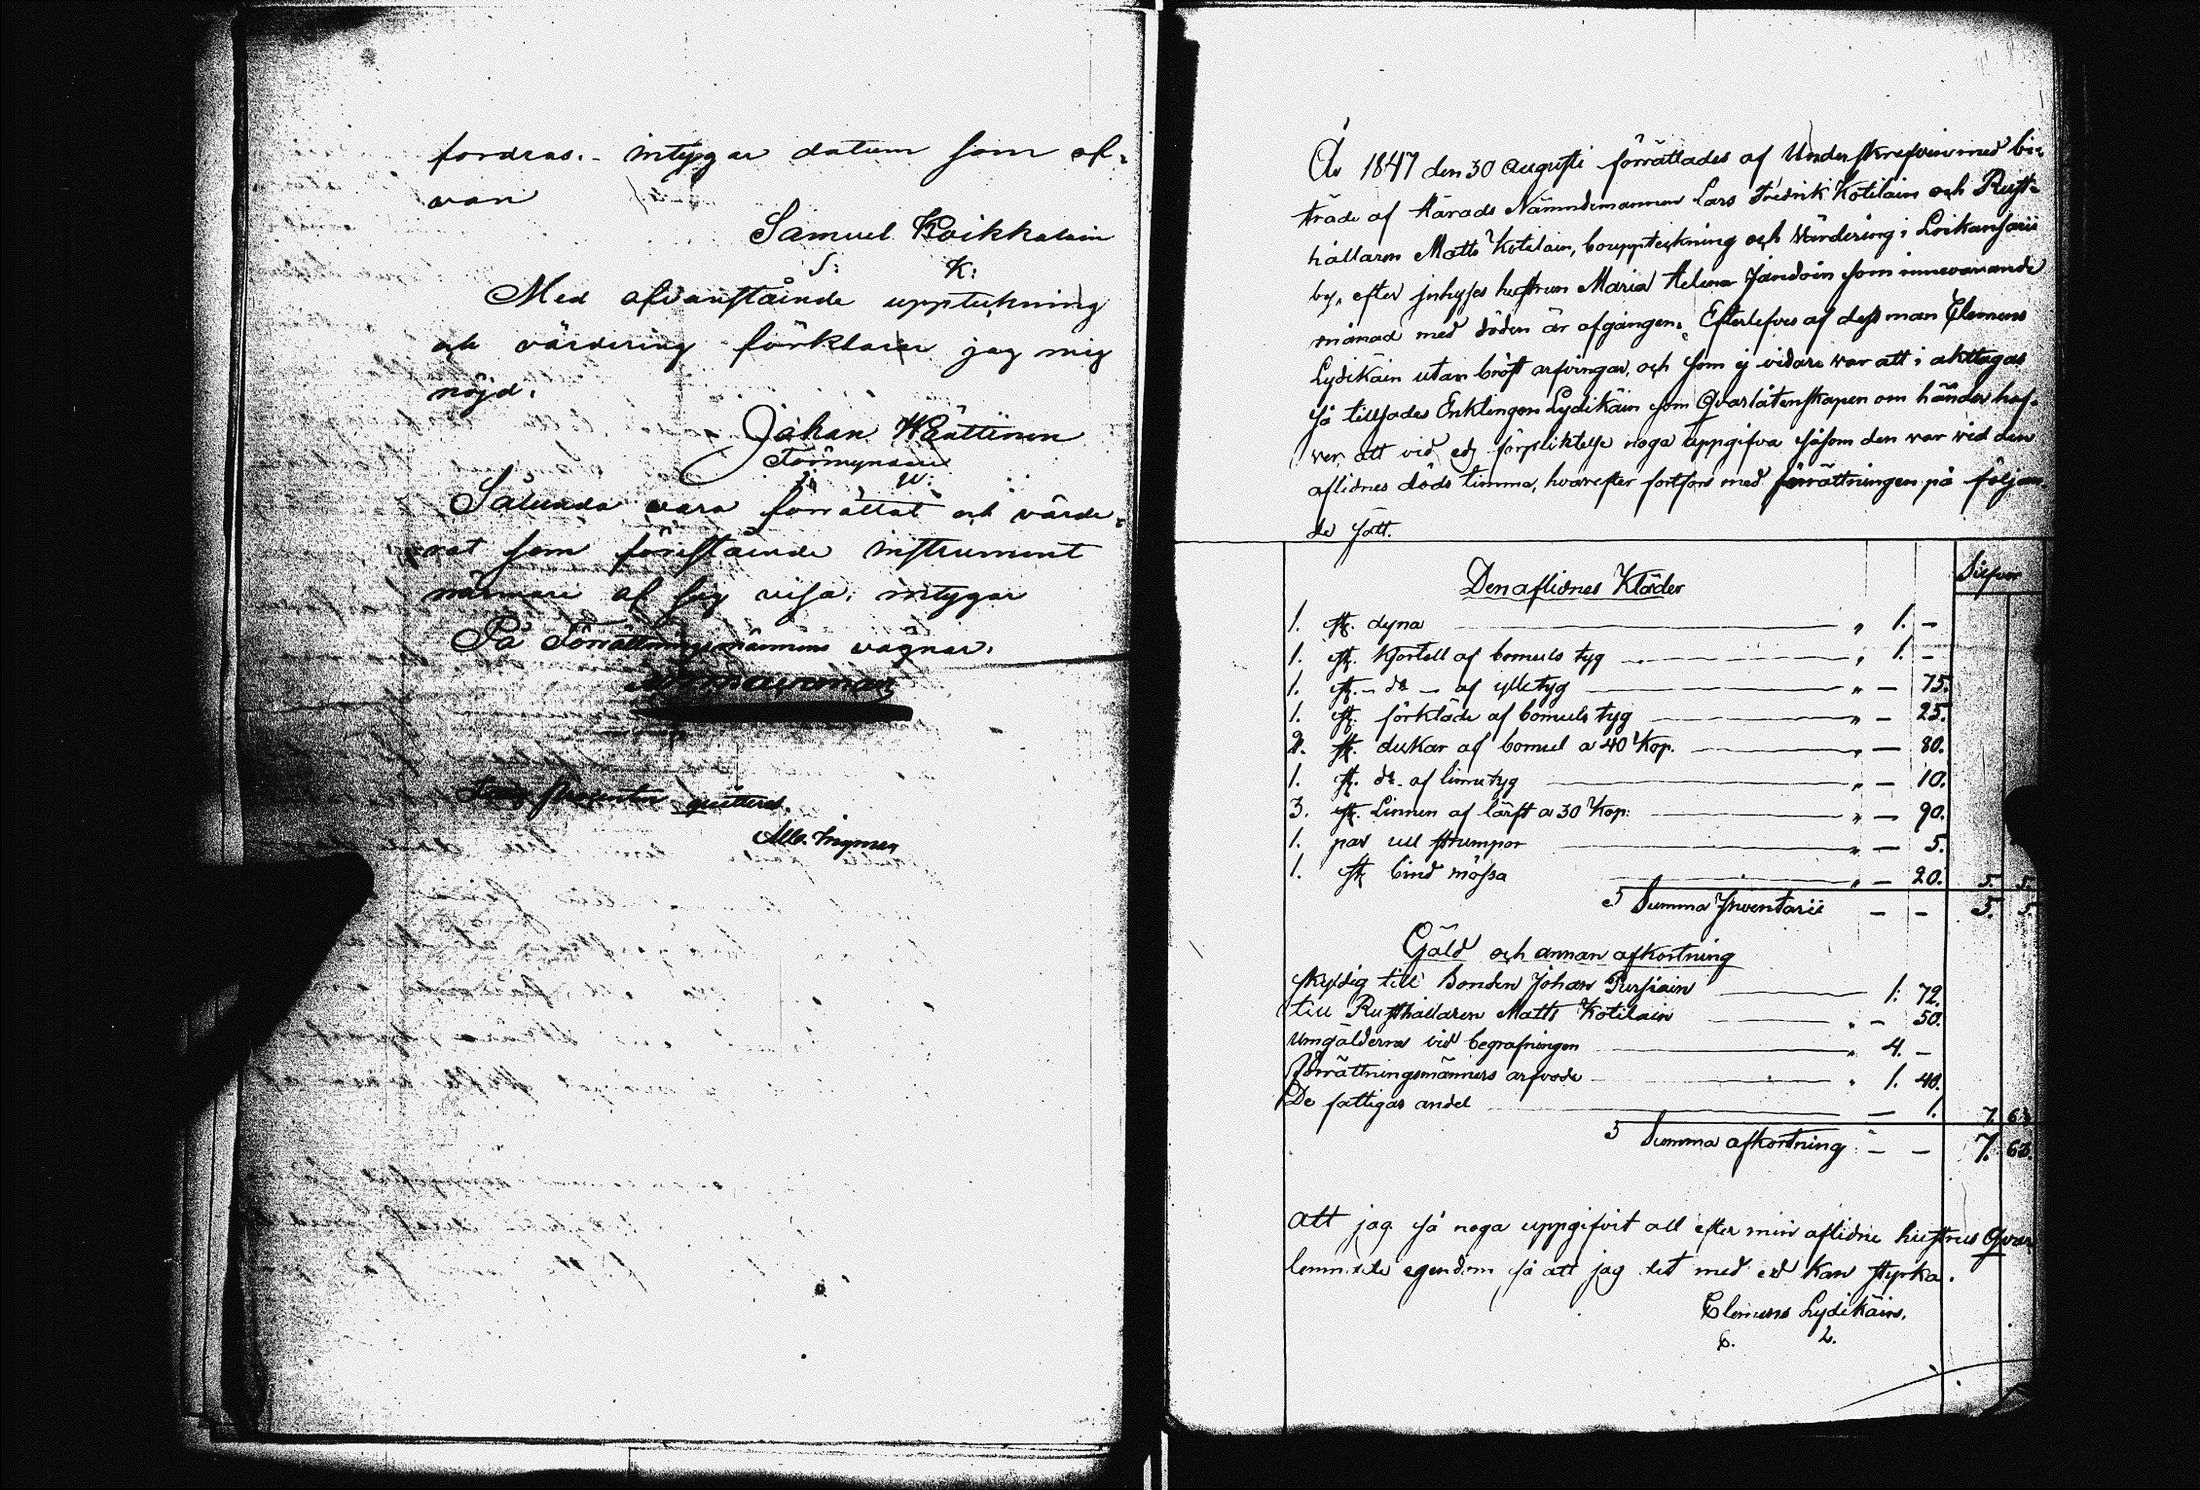 fordras. intygar datum som of-
van
Samuel Koikkalain
S: K:
Med ofvanstående uppteckning
och värdering förklarar jag mig
nöjd.
Johan Wäättinen
Förmyndare
J: W:
Sålunda vara förrättat och värde-
rat som föreståënde instrument
närmare af sig visa, intygar
På Förrättningsmännens vägnar.
qvitterat.
År 1847 den 30 Augusti förrättades af Underskrefven med bi-
träde af Härads Nämndemannen Lars Fredrik Kotilain och Rust-
hållaren Matts Kotilain, bouppteckning och Värdering i Loikansaari
by, efter jnhyses hustrun Maria Helena Jandoin som innevarande
månad med döden är afgången. Efterlefves af dess man Clemens
Lydikäin utan bröst arfvingar, och som ej vidare var att i akttagas
så tillsades Enklingen Lydikäin som Qvarlåtenskapen om händer haf-
ver, att vid edz förpliktelse noga uppgifva såsom den var vid den
aflidnes döds timma, hvarefter fortfors med förrättningen på följan-
de sätt.
Silfver
Den aflidnes Kläder
1. st. dyna " 1. —
1. st. Kjortell af bomuls tyg " 1. —
1. st. — do — af ylletyg " — 75.
1. st. förkläde af bomuls tyg " — 25.
2. st. dukar af bomul a 40 Kop. " — 80.
1. st. do af linnetyg " — 10.
3. st. Linnen af lärft a 30 Kop. " — 90.
1. par ull strumpor " — 5.
1. st bind mössa " — 20. 5. 5.
Summa Jnventarii — — 5. 5.
Gäld och annan afkortning
skyldig till Bonden Johan Pursiain 1. 72.
till Rusthållaren Matts Kotilain " — 50.
Umgälderna vid begrafningen " 4. —
Förrättningsmänners arfvode " 1. 40.
De fattigas andel — 1. 7. 63.
Summa afkortning — — 7. 63.
Att jag så noga uppgifvit all efter min aflidne hustrus Qvar
lemnade egendom så att jag det med ed kan styrka.
Clemens Lydikäin.
C. L.